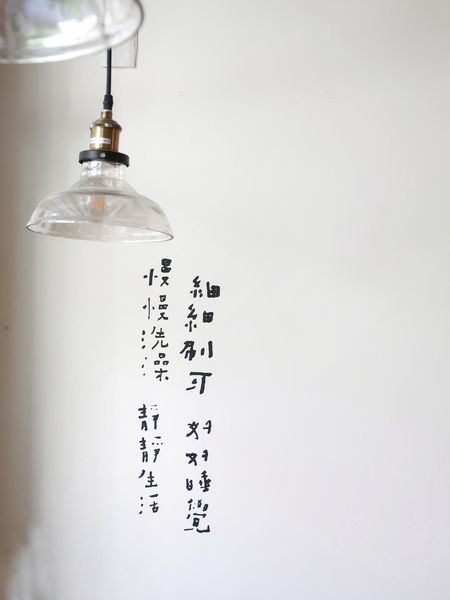 細細刷牙 好好睡覺
慢慢洗澡 靜靜生活